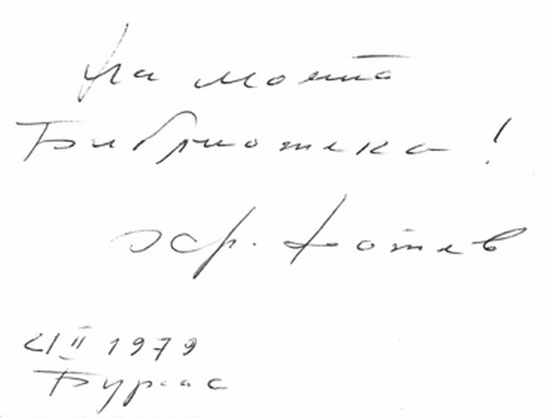 На моята
Библиотека!
Хр. Фотев
21 II 1979
Бургас